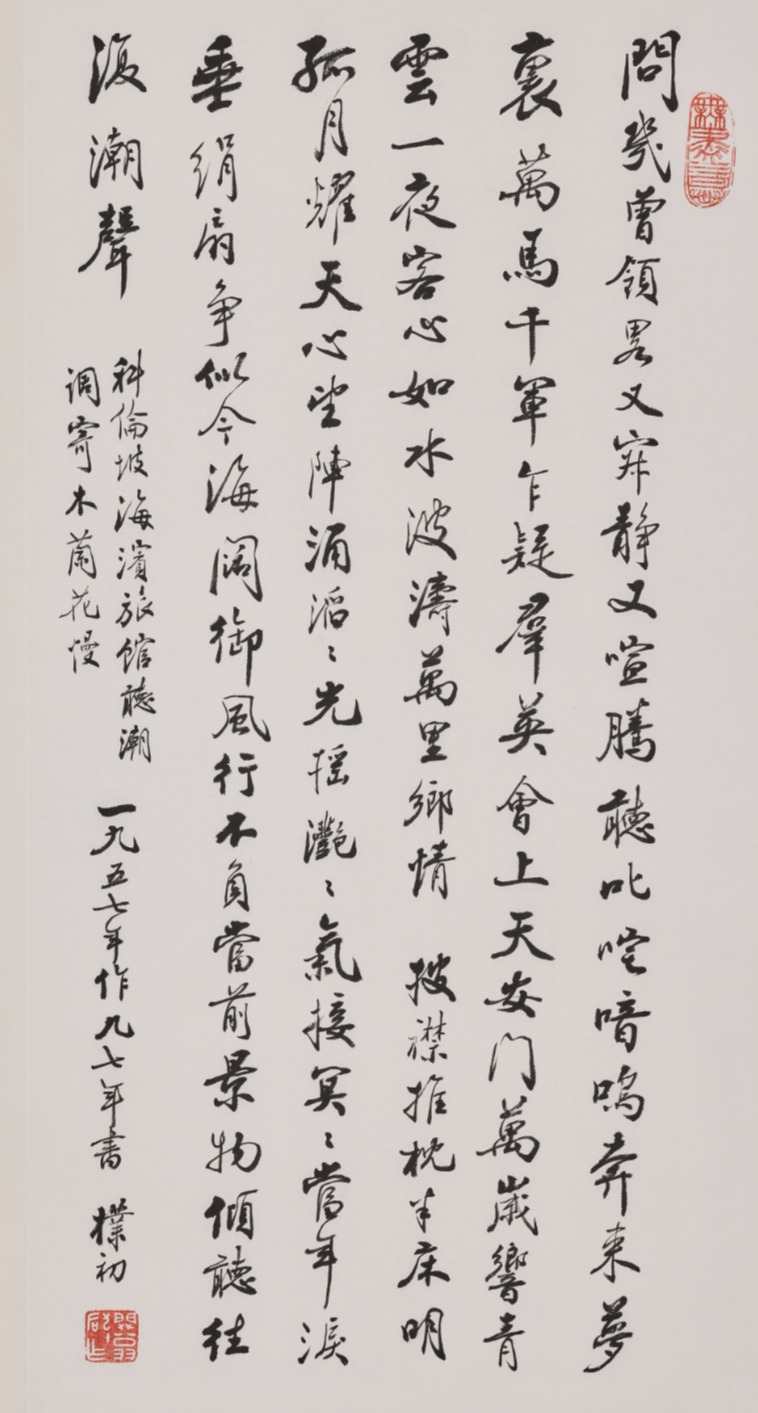 問幾曾領畧又寂靜又喧騰聽叱咤喑嗚奔來夢
裏萬馬千軍乍疑羣英會上天安門萬歲響青
雲一夜客心如水波濤萬里鄉情 披襟推枕半床明
孤月耀天心望陣涌滔〻光摇灔〻氣接冥〻當年淚
垂絹扇争似今海闊御風行不負當前景物傾聽往
復潮聲
科倫坡海濱旅館聽潮
调寄木蘭花慢
一九五七年作九七年書 樸初